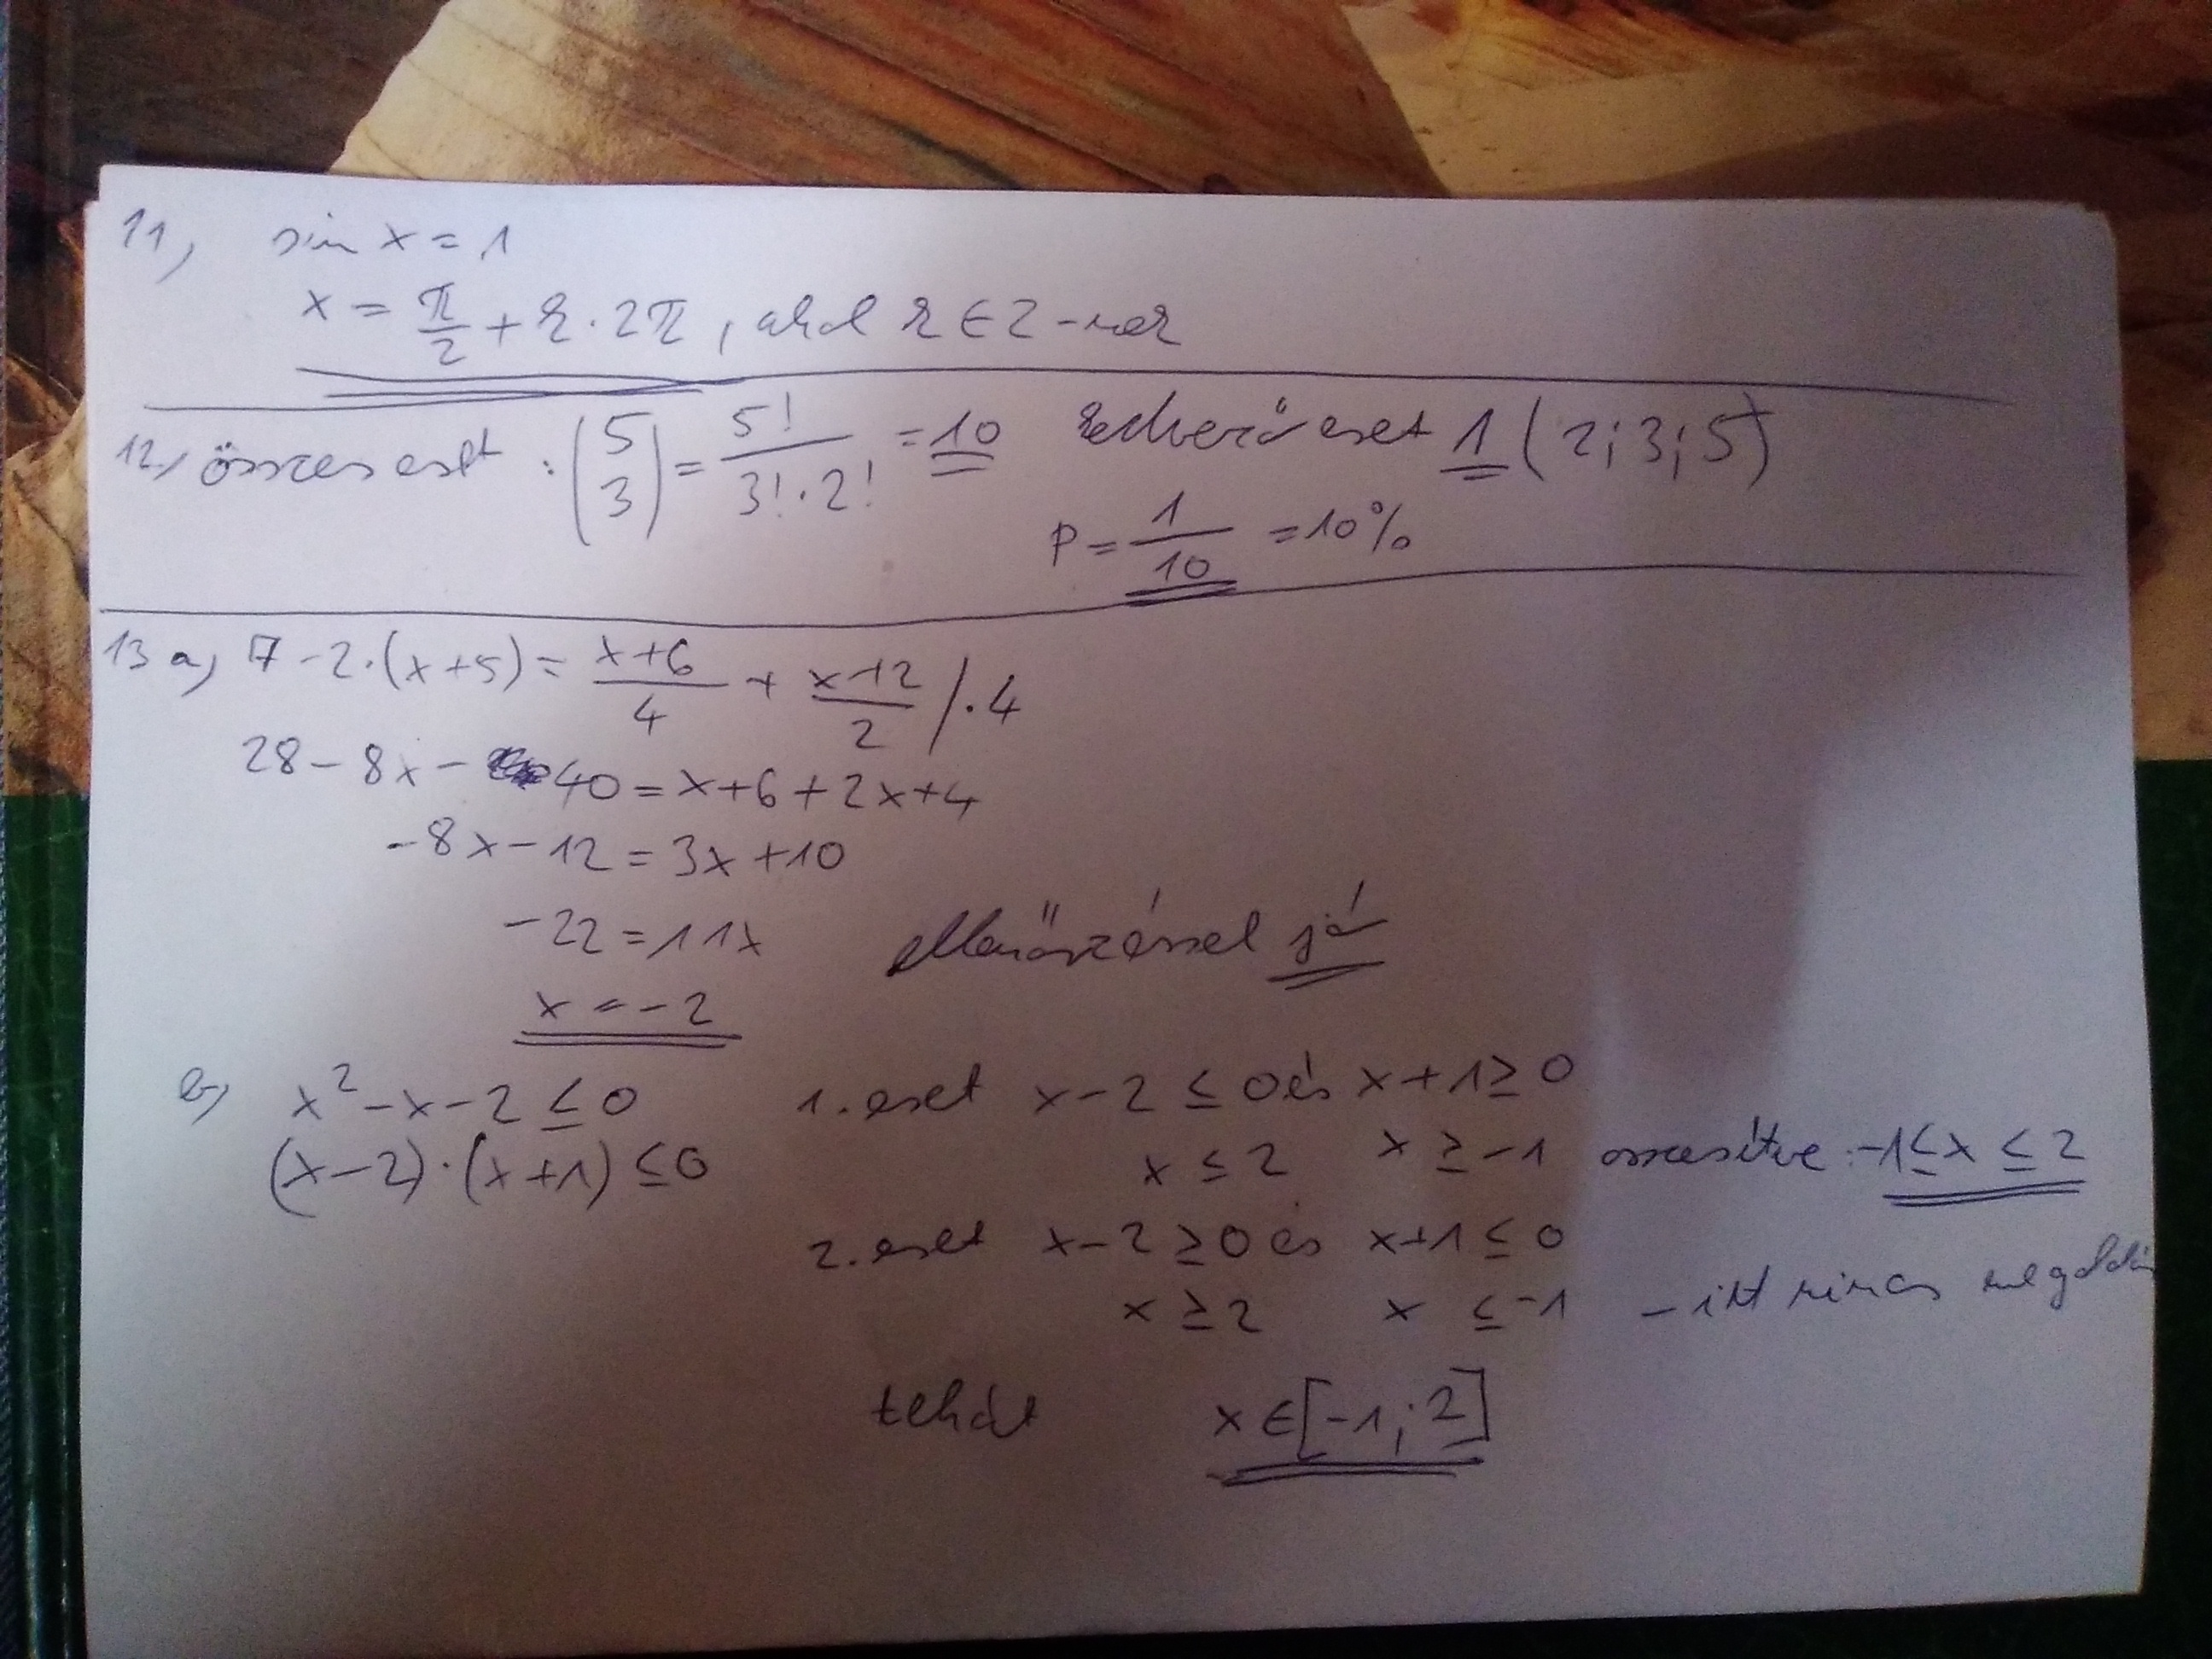 11, sin x = 1
x = π/2 + k · 2π, ahol k ∈ Z
12, összes eset : (5 3) = 5!/(3! · 2!) = 10 kedvező eset 1 (2; 3; 5)
P = 1/10 = 10%
13 a, 7 - 2 · (x + 5) = (x+6)/4 + (x+2)/2 / · 4
28 - 8x - 40 = x + 6 + 2x + 4
-8x - 12 = 3x + 10
-22 = 11x ellenőrzéssel jó
x = -2
b, x² - x - 2 ≤ 0 1. eset x - 2 ≤ 0 és x + 1 ≥ 0
(x - 2) · (x + 1) ≤ 0 x ≤ 2 x ≥ -1 összesítve: -1 ≤ x ≤ 2
2. eset x - 2 ≥ 0 és x + 1 ≤ 0
x ≥ 2 x ≤ -1 - itt nincs megoldás
tehát x ∈ [-1; 2]